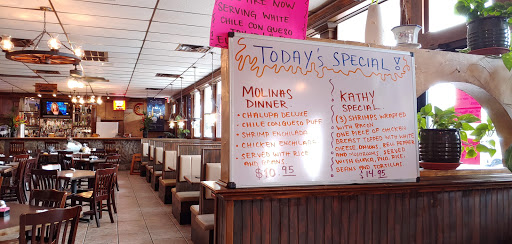 TAKE NOW
SERVING WHITE
CHILE CON QUESO
TODAY'S SPECIAL!
MOLINAS
DINNER
• CHALUPA DELUXE
• CHILE CON QUESO PUFF
• SHRIMP ENCHILADA
• CHICKEN ENCHILADA
• SERVED WITH RICE
AND BEANS
$10.95
KATHY
SPECIAL
(3) SHRIMPS WRAPPED
WITH BACON
ONE PIECE OF CHICKEN
BREAST TOPPED WITH WHITE
CHEESE, ONIONS, BELL PEPPER
AND MUSHROOMS. SERVED
WITH GUACA, PICO, RICE,
BEANS AND TORTILLAS
$14.95